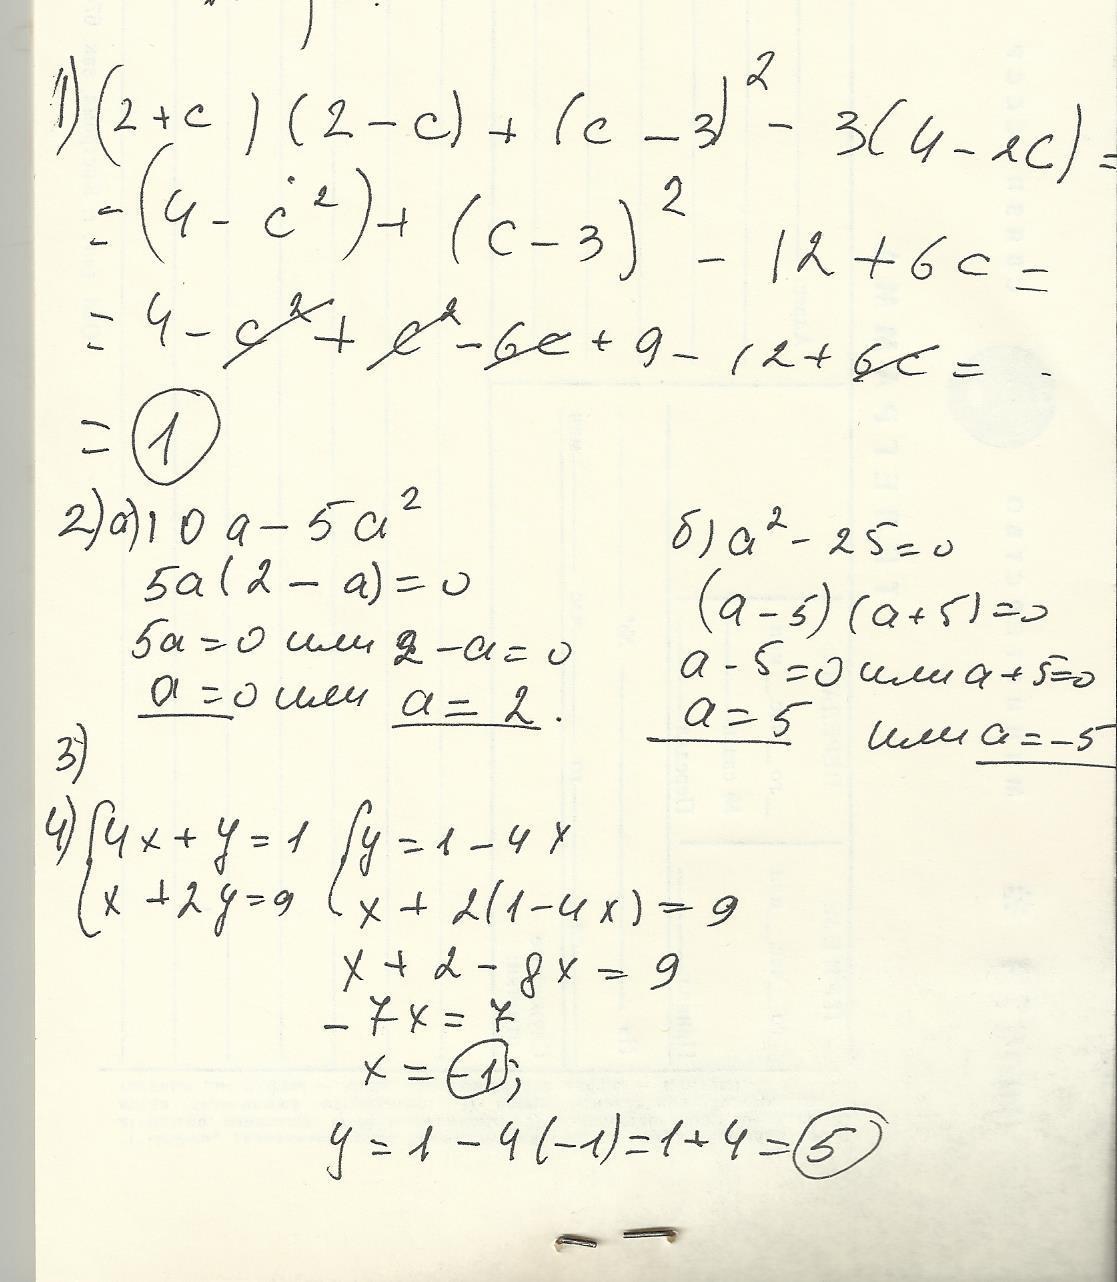 1) (2+c)(2-c) + (c-3)² - 3(4-2c) =
= (4-c²) + (c-3)² - 12+6c =
= 4-c²+c²-6c+9-12+6c =
= 1
2) а) 10a-5a²
5a(2-a)=0
5a=0 или 2-a=0
a=0 или a=2.
б) a²-25=0
(a-5)(a+5)=0
a-5=0 или a+5=0
a=5 или a=-5
3)
4) { 4x+y=1 { y=1-4x
x+2y=9 x+2(1-4x)=9
x+2-8x=9
-7x=7
x=-1;
y=1-4(-1)=1+4=5